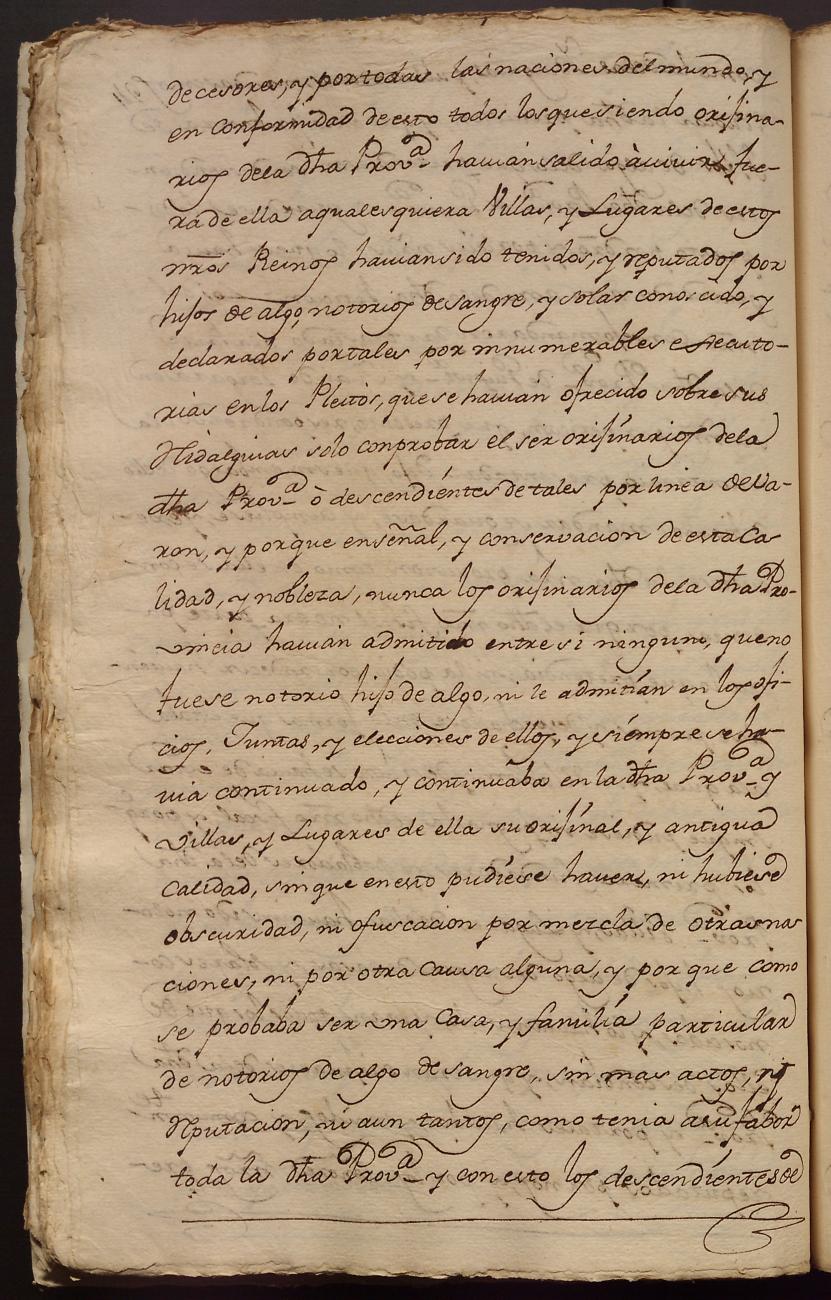 decesores, y por todas las naciones del mundo, y
en Conformidad de esto todos los que siendo orijina-
rios dela dha Prov.ª havian salido à vivir fue-
ra de ella a qualesquiera Villas, y Lugares de estos
nrõs Reinos havian sido tenidos, y reputados por
hijos de algo, notorios de sangre, y solar conoscido, y
declarados por tales por innumerables executo-
rias en los Pleitos, que se havian ofrecido sobre sus
Hidalguias solo con probar el ser orijinarios dela
dha Prov.ª ò descendientes de tales por linea de Va-
ron, y porque en señal, y conservacion de esta Ca-
lidad, y nobleza, nunca los orijinarios dela dha Pro-
vincia havian admitido entre si ninguno, que no
fuese notorio hijo de algo, ni le admitian en los ofi-
cios, Juntas, y elecciones de ellos, y siempre se ha-
via continuado, y continuaba en la dha Prov.ª y
Villas, y Lugares de ella su orijinal, y antigua
Calidad, sin que en esto pudiese haver, ni hubiese
obscuridad, ni ofuscacion por mezcla de otras na
ciones, ni por otra Causa alguna, y por que como
se probaba ser una Casa, y familia particular
de notorios de algo de sangre, sin mas actos, ni
Reputacion, ni aun tantos, como tenia a su fabor
toda la dha Prov.ª y con esto los descendientes de